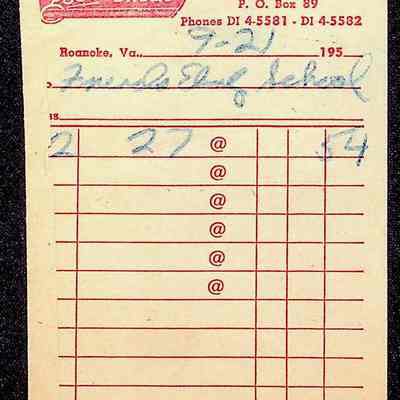 P. O. Box 89
Phones DI 4-5581 - DI 4-5582
Roanoke, Va., 9-21 195
Elem. School
2 27 @ 54
@
@
@
@
@